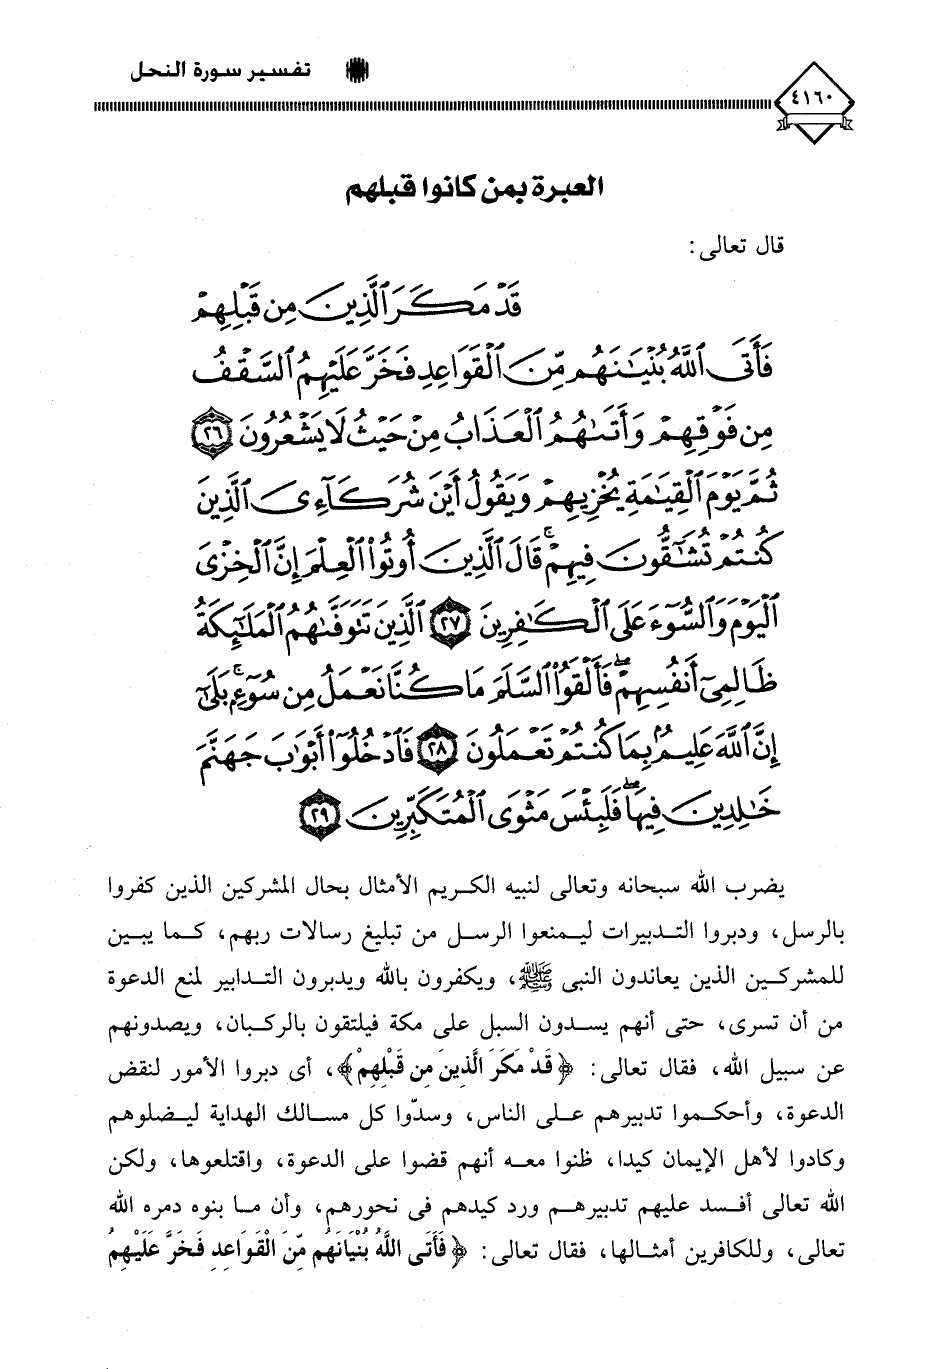 تفسير سورة النحل
٤١٦٠
العبرة بمن كانوا قبلهم
قال تعالى:
قَدْ مَكَرَ ٱلَّذِينَ مِن قَبْلِهِمْ
فَأَتَى ٱللَّهُ بُنْيَٰنَهُم مِّنَ ٱلْقَوَاعِدِ فَخَرَّ عَلَيْهِمُ ٱلسَّقْفُ
مِن فَوْقِهِمْ وَأَتَىٰهُمُ ٱلْعَذَابُ مِنْ حَيْثُ لَا يَشْعُرُونَ ٢٦
ثُمَّ يَوْمَ ٱلْقِيَٰمَةِ يُخْزِيهِمْ وَيَقُولُ أَيْنَ شُرَكَآءِىَ ٱلَّذِينَ
كُنتُمْ تُشَٰٓقُّونَ فِيهِمْ ۚ قَالَ ٱلَّذِينَ أُوتُوا۟ ٱلْعِلْمَ إِنَّ ٱلْخِزْىَ
ٱلْيَوْمَ وَٱلسُّوٓءَ عَلَى ٱلْكَٰفِرِينَ ٢٧ ٱلَّذِينَ تَتَوَفَّىٰهُمُ ٱلْمَلَٰٓئِكَةُ
ظَالِمِىٓ أَنفُسِهِمْ ۖ فَأَلْقَوُا۟ ٱلسَّلَمَ مَا كُنَّا نَعْمَلُ مِن سُوٓءٍۭ ۚ بَلَىٰٓ
إِنَّ ٱللَّهَ عَلِيمٌۢ بِمَا كُنتُمْ تَعْمَلُونَ ٢٨ فَٱدْخُلُوٓا۟ أَبْوَٰبَ جَهَنَّمَ
خَٰلِدِينَ فِيهَا ۖ فَلَبِئْسَ مَثْوَى ٱلْمُتَكَبِّرِينَ ٢٩
يضرب الله سبحانه وتعالى لنبيه الكريم الأمثال بحال المشركين الذين كفروا
بالرسل، ودبروا التدبيرات ليمنعوا الرسل من تبليغ رسالات ربهم، كما يبين
للمشركين الذين يعاندون النبى ﷺ، ويكفرون بالله ويدبرون التدابير لمنع الدعوة
من أن تسرى، حتى أنهم يسدون السبل على مكة فيلتقون بالركبان، ويصدونهم
عن سبيل الله، فقال تعالى: ﴿قَدْ مَكَرَ الَّذِينَ مِن قَبْلِهِمْ﴾، أى دبروا الأمور لنقض
الدعوة، وأحكموا تدبيرهم على الناس، وسدّوا كل مسالك الهداية ليضلوهم
وكادوا لأهل الإيمان كيدا، ظنوا معه أنهم قضوا على الدعوة، واقتلعوها، ولكن
الله تعالى أفسد عليهم تدبيرهم ورد كيدهم فى نحورهم، وأن ما بنوه دمره الله
تعالى، وللكافرين أمثالها، فقال تعالى: ﴿فَأَتَى اللَّهُ بُنْيَانَهُم مِّنَ الْقَوَاعِدِ فَخَرَّ عَلَيْهِمُ